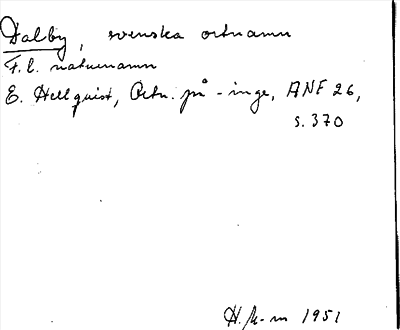 Dalby, svenska ortnamn
F.l. naturnamn
E. Hellquist, Ortn. på -inge, ANF 26,
s. 370
H. 1951